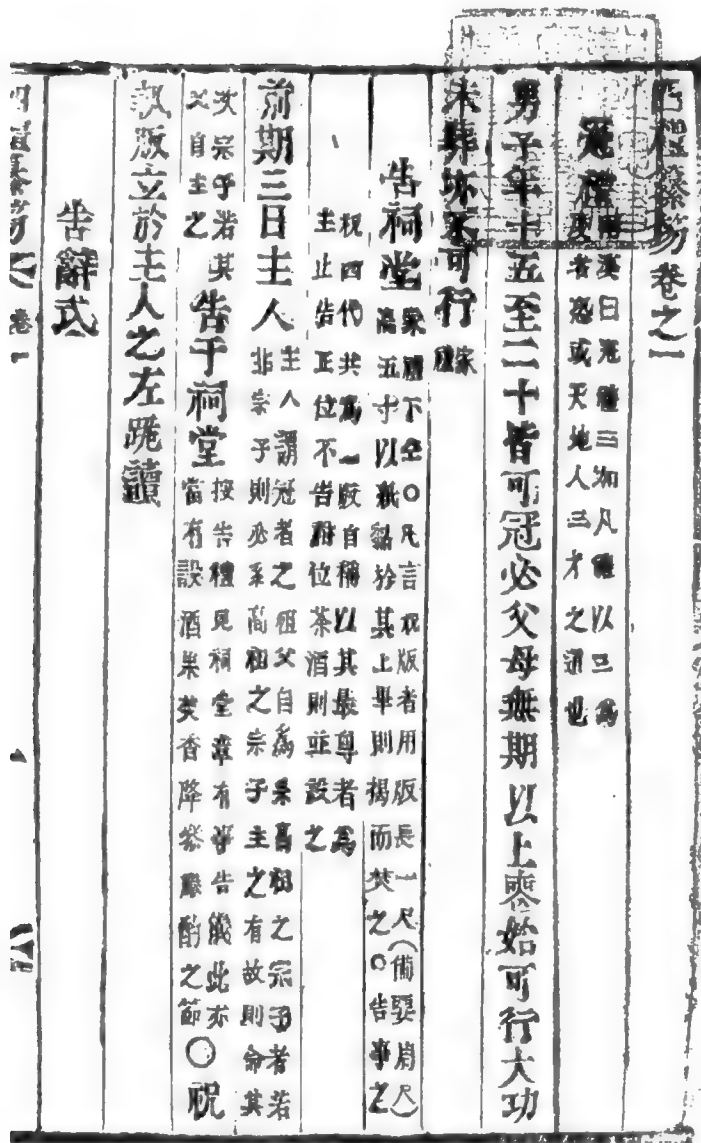 四禮纂笏卷之一
冠禮 漢曰冠禮三加凡禮以三爲
度者 或天地人三才之道也
男子年十五至二十皆可冠必父母無期以上喪始可行大功
未葬亦不可行 家禮
告祠堂 家禮下仝○凡言祝版者用版長一尺(備要周尺)
高五寸以紙 於其上畢則揭而焚之○告事之
祝四代共爲一版自稱以其最尊者爲
主止告正位不告祔位茶酒則並設之
前期三日主人 主人謂冠者之祖父自爲繼高祖之宗子者若
非宗子則必繼高祖之宗子主之有故則命其
次宗子若其
父自主之 告于祠堂 按告禮見祠堂章有事告儀此亦
當有設酒果焚香降參 酌之節○祝
執版立於主人之左跪讀
告辭式
四禮纂笏 卷一